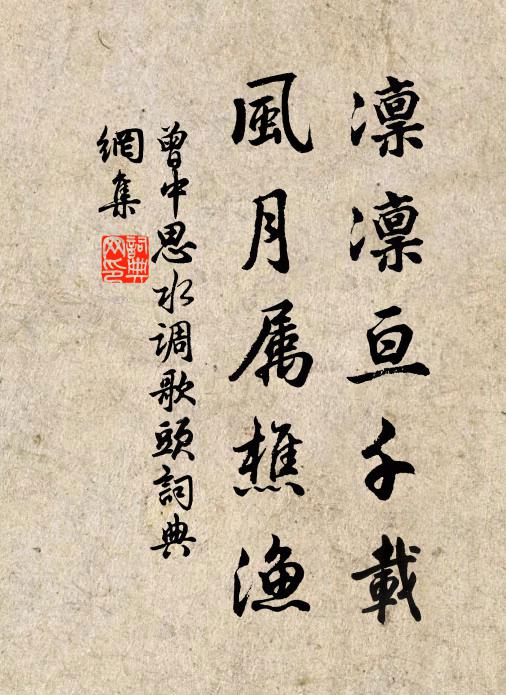 凛凛亘千載
風月属樵漁
曾中思水调歌頭詞典
網集
詞典
网印